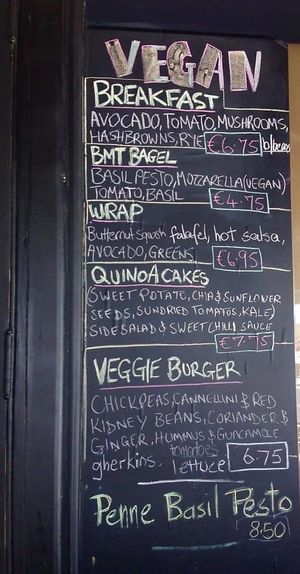 VEGAN
BREAKFAST
AVOCADO, TOMATO, MUSHROOMS,
HASHBROWNS, RYE €6.75
BMT BAGEL
BASIL PESTO, MOZZARELLA (VEGAN)
TOMATO, BASIL €4.75
WRAP
Butternut Squash falafel, hot salsa,
AVOCADO, GREENS €6.95
QUINOA CAKES
(SWEET POTATO, CHIA & SUNFLOWER
SEEDS, SUNDRIED TOMATOS, KALE)
SIDE SALAD & SWEET CHILLI SAUCE
€7.75
VEGGIE BURGER
CHICKPEAS, CANNELLINI & RED
KIDNEY BEANS, CORIANDER &
GINGER, HUMMUS & GUACAMOLE
gherkins. tomatoes
lettuce 6.75
Penne Basil Pesto
8.50